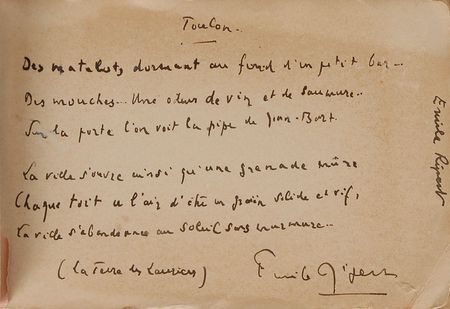 Toulon..
Des matelots dormant au fond d'un petit bar...
Des mouches... Une odeur de vin et de saumure..
Sur la porte l'on voit la pipe de Jean-Bart.
La ville s'ouvre ainsi qu'une grenade mûre
Chaque toit a l'air d'être un grain solide et vif,
La ville s'abandonne au soleil sans murmure..
(La Terre des Lauriers)
Emile Ripert
Emile Ripert